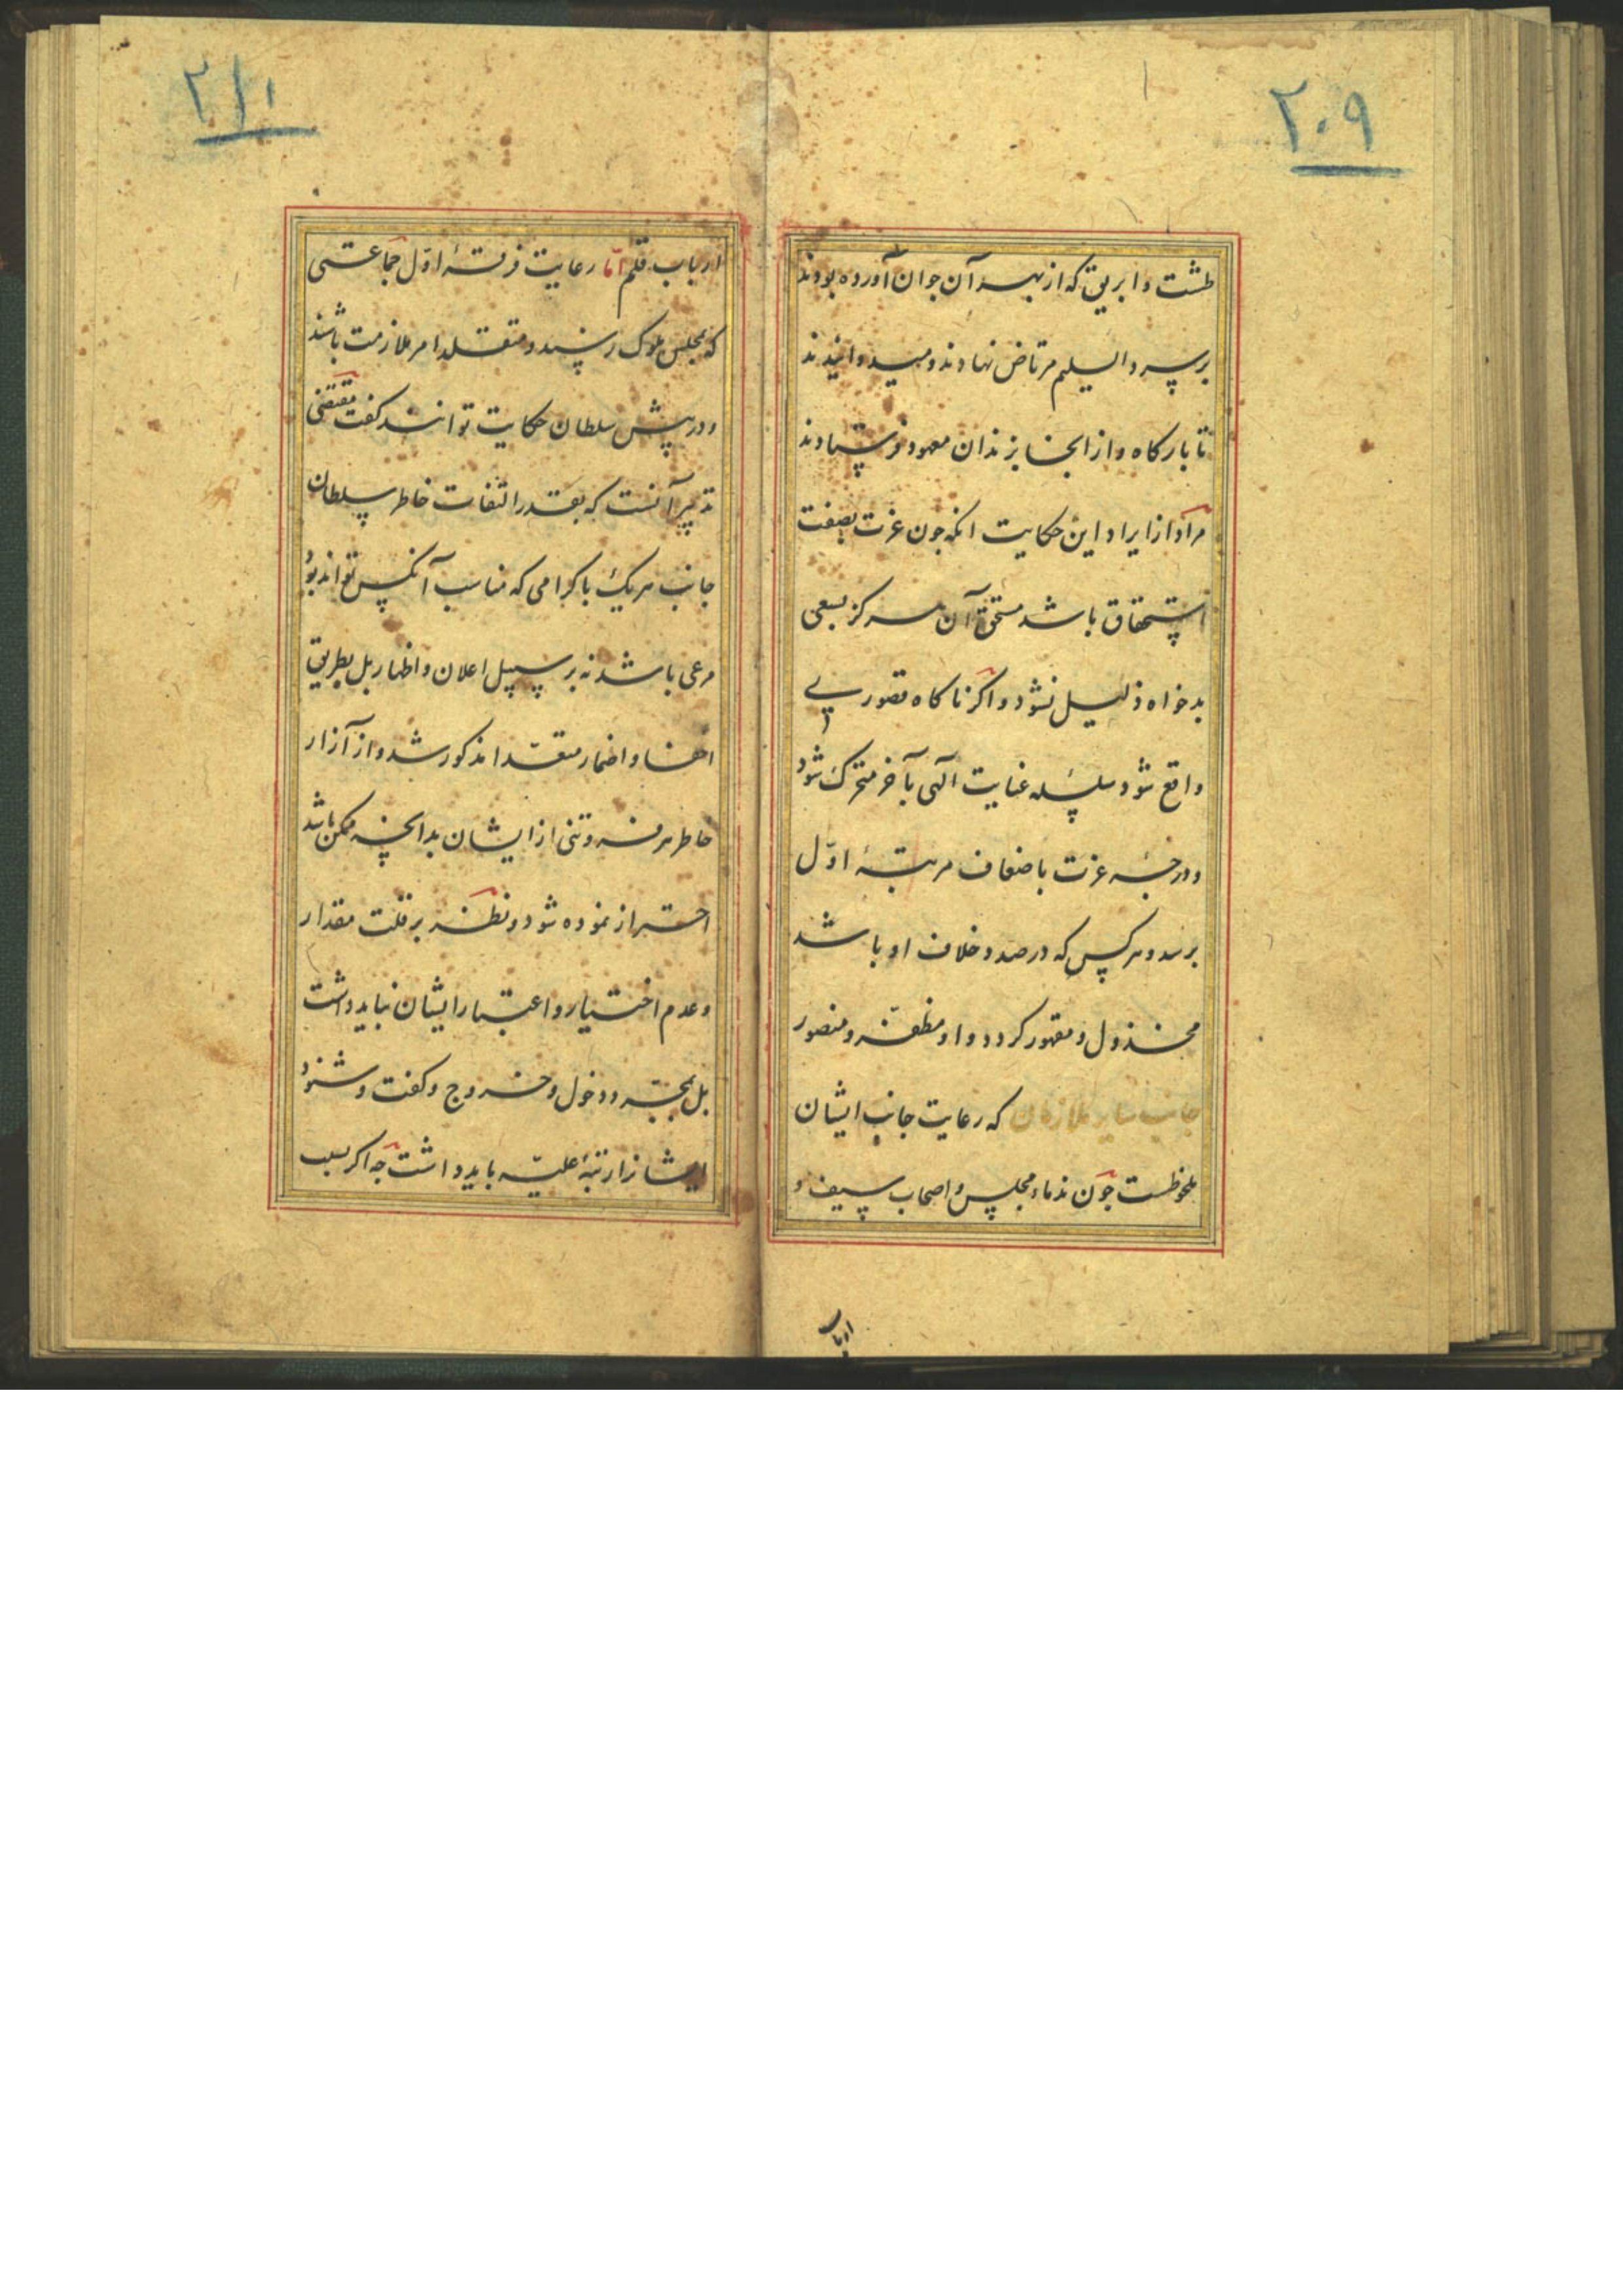 ۲۰۹
طشت و ابریق که از بهر آن جوان آورده بودند
بر سر والیلم مرتاض نهادند و میدوانیدند
تا بارکاه و از انجا بزندان معهود فرستادند
مراد از ایراد این حکایت انکه چون عزت بصفت
استحقاق باشد مستحق آن هرکز بسعی
بدخواه ذلیل نشود و اکر ناکاه قصوری
واقع شود سلسله عنایت الهی بآخر متحرک شود
و درجهٔ عزت باضعاف مرتبهٔ اوّل
برسد و هرکس که در صدد خلاف او باشد
مخذول و مقهور کردد و او مظفّر و منصور
جانب سایر ملازمان که رعایت جانب ایشان
ملحوظست چون ندماء مجلس و اصحاب سیف و
ارباب
۲۱۰
ارباب قلم امّا رعایت فرقهٔ اوّل جماعتی
که بمجلس ملوک رسند و متقلد امر ملازمت باشند
و در پیش سلطان حکایت توانند کفت مقتضی
تدبیر آنست که بقدر التفات خاطر سلطان
جانب هر یک باکرامی که مناسب آنکس تواند بود
مرعی باشد نه بر سبیل اعلان و اظهار بل بطریق
اخفا و اضمار متقدا مذکور شد و از آزار
خاطر هر فروتنی از ایشان بدانچه ممکن باشد
احتراز نموده شود و نظر بر قلت مقدار
و عدم اختیار و اعتبار ایشان نباید داشت
بل بجهة دخول و خروج و کفت و شنود
ایشانرا رتبهٔ علیّه باید داشت چه اکر بسبب